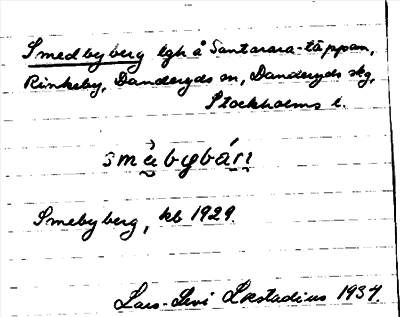 Smedbyberg lgh å Santarara-täppan,
Rinkeby, Danderyds sn, Danderyds skg,
Stockholms l.
smèbybári
Smebyberg, kb 1929.
Lars-Levi Læstadius 1937.